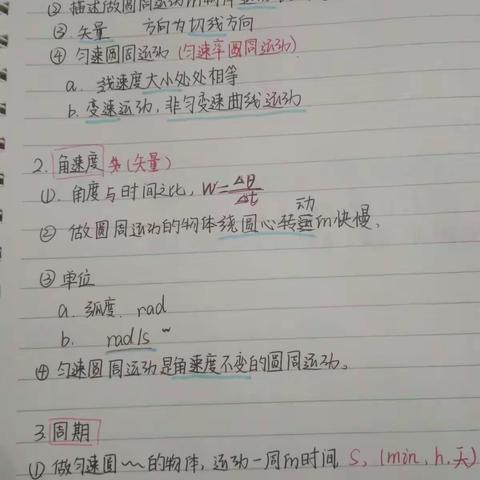 ② 描述做圆周运动的物体
③ 矢量 方向为切线方向
④ 匀速圆周运动 (匀速率圆周运动)
a. 线速度大小处处相等
b. 变速运动, 非匀变速曲线运动
2. 角速度 (矢量)
①. 角度与时间之比, W=Δθ/Δt
② 做圆周运动的物体绕圆心转动的快慢.
③ 单位
a. 弧度. rad
b. rad/s
④ 匀速圆周运动是角速度不变的圆周运动。
3. 周期
① 做匀速圆~的物体, 运动一周的时间 S, (min, h, 天)